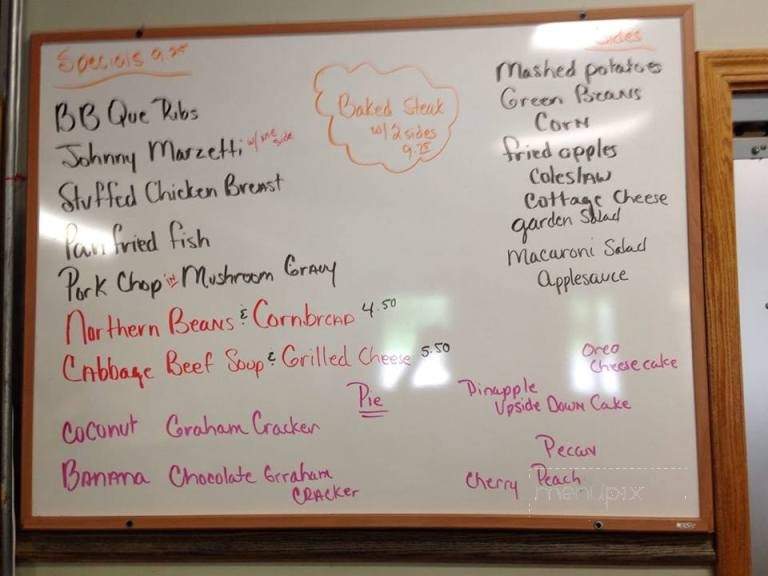 Specials 9.25
BB Que Ribs
Johnny Marzetti w/ one side
Stuffed Chicken Breast
Pan fried fish
Pork Chop in Mushroom Gravy
Northern Beans & Cornbread 4.50
Cabbage Beef Soup & Grilled Cheese 5.50
Baked Steak
w/ 2 sides
9.25
Sides
Mashed potatoes
Green Beans
Corn
fried apples
Coleslaw
Cottage Cheese
garden Salad
Macaroni Salad
Applesauce
Pie
Coconut Graham Cracker
Banana Chocolate Grraham
Cracker
Oreo
Cheesecake
Pinapple
Upside Down Cake
Pecan
Cherry Peach
menupix